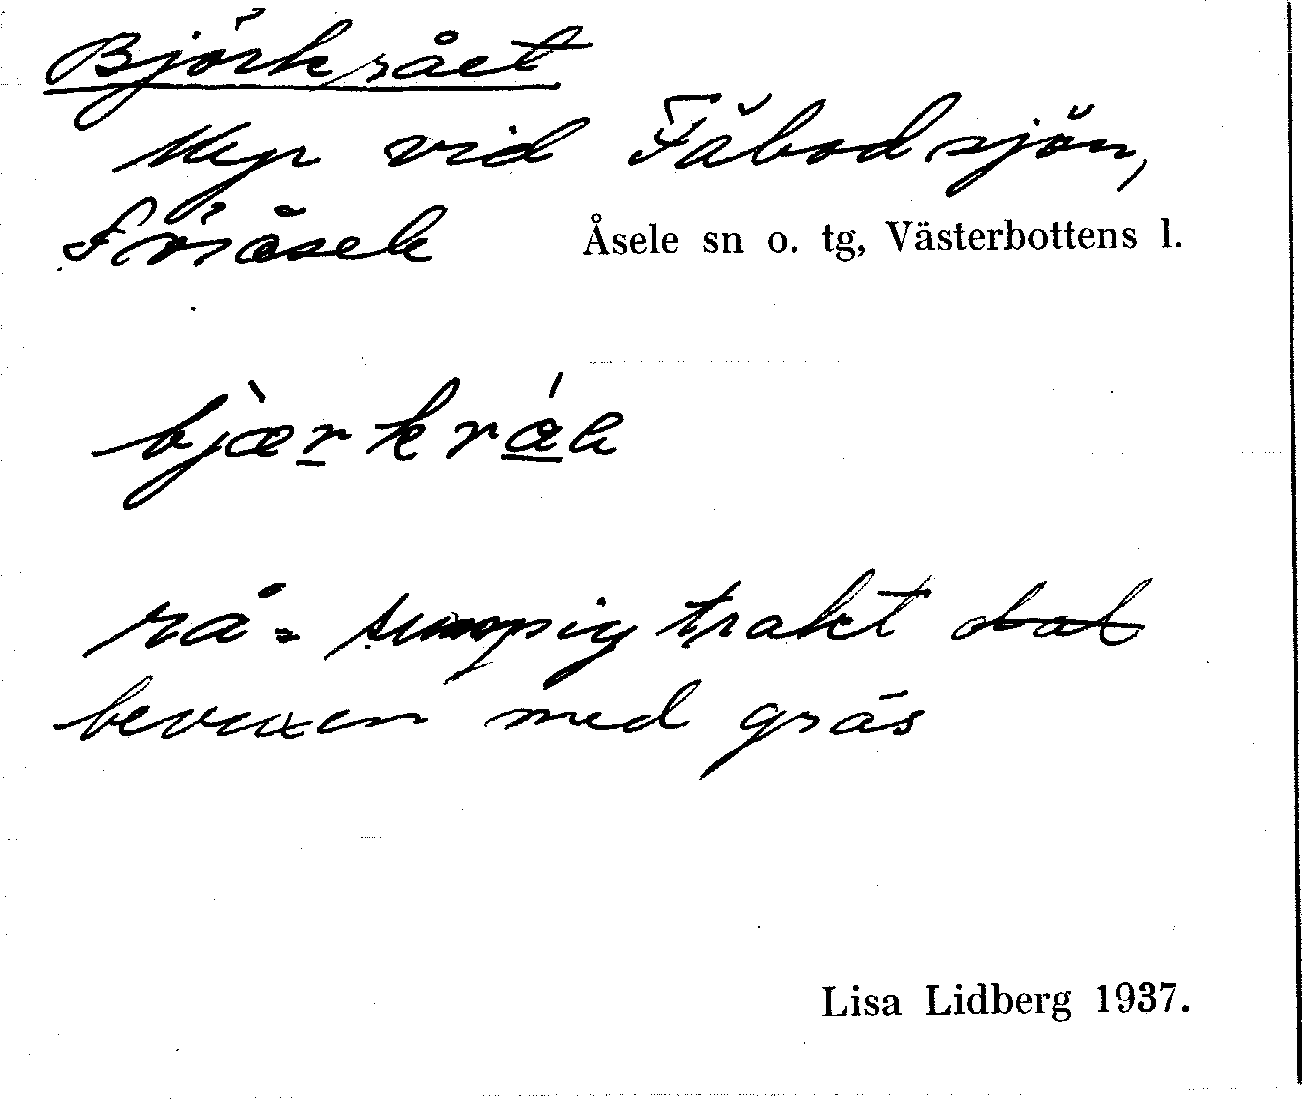 Björkrået
Myr vid Fäbodsjön,
Åsele sn o. tg, Västerbottens l.
bjærkråe
rå = sumpig trakt
bevuxen med gräs
Lisa Lidberg 1937.